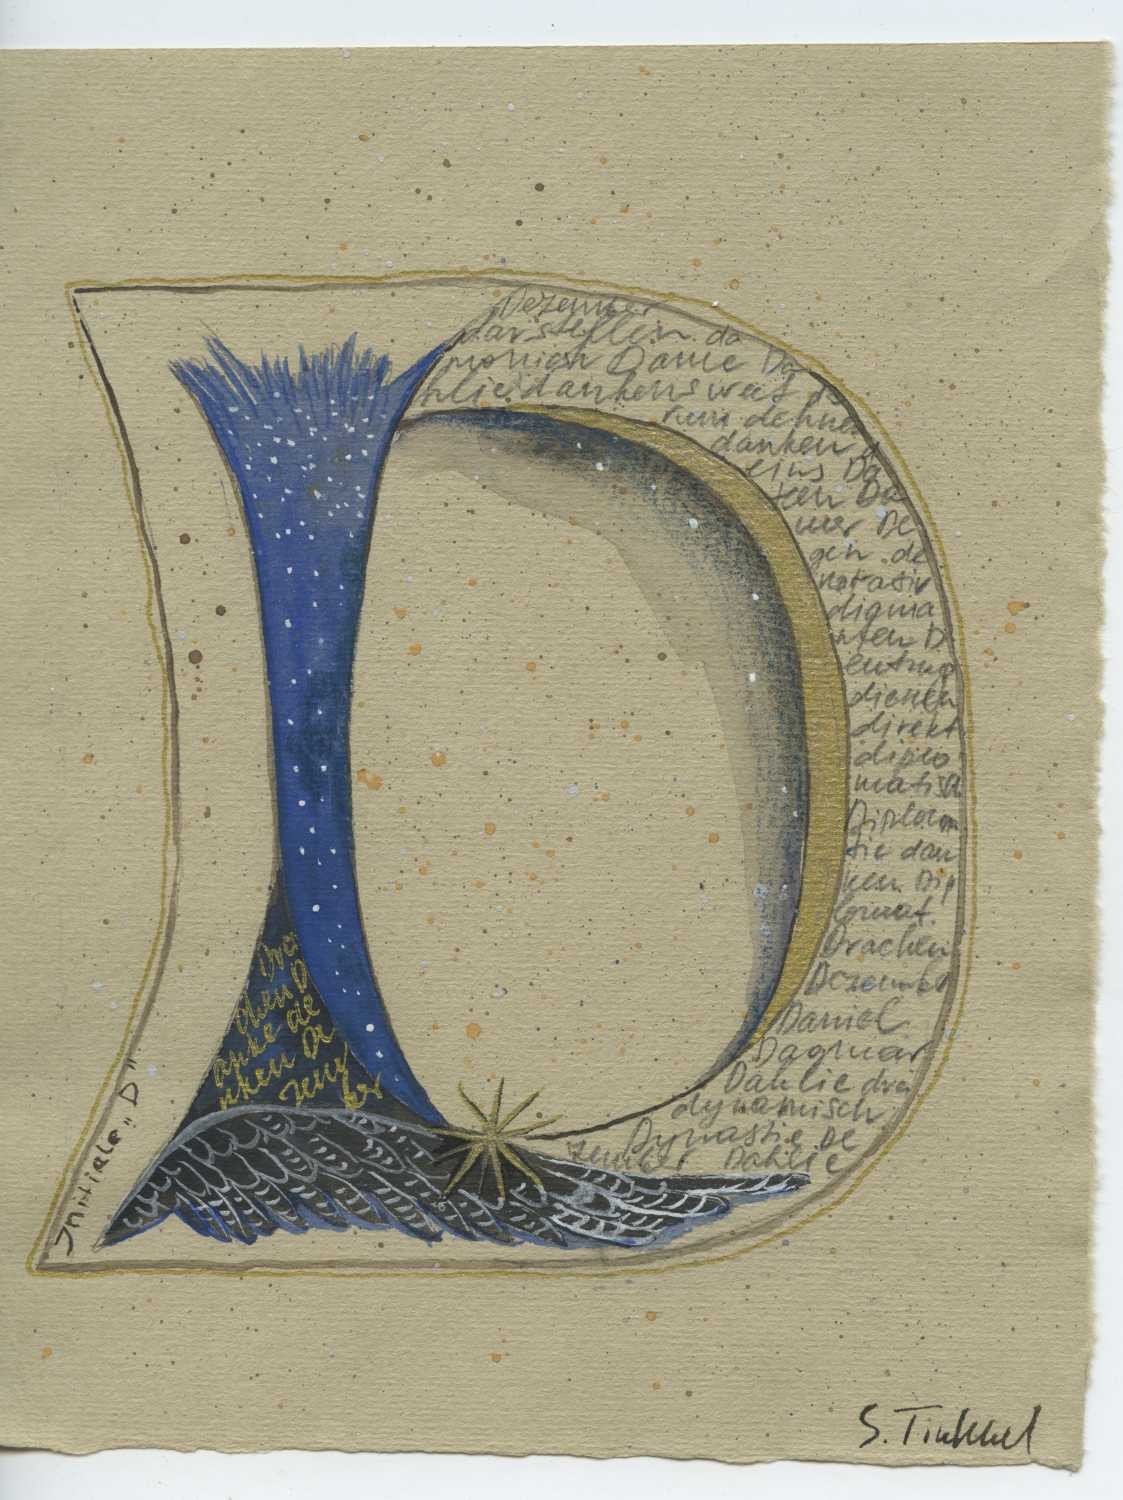 Dezember
darstellen da
monisch Dame Da
hlie dankenswert da
rum dehnen
danken d
eins Da
ten Da
mer De
gen de
notativ
digma
ten D
entzug
dienen
direkt
diplo
matisch
Diplom
tie dan
ken Dip
lomat.
Drachen
Dezember
Daniel
Dagmar
Dahlie drei
dynamisch
Dynastie De
zember Dahlie
Dra
chen D
anke de
nken De
zem
ber
Initiale "D"
S.